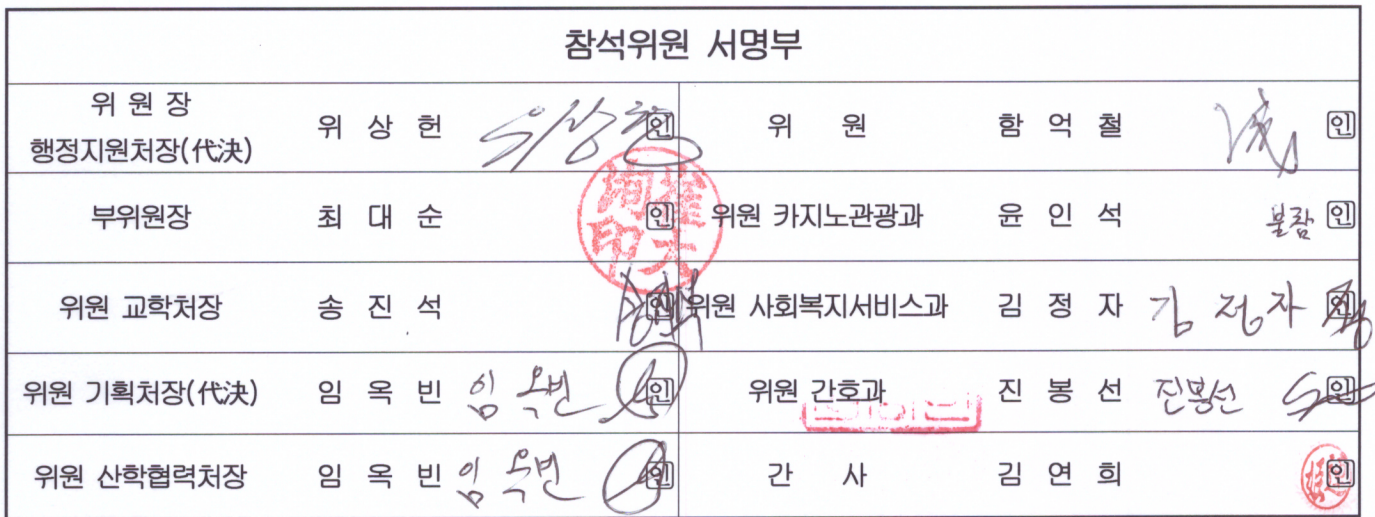 참석위원 서명부
위 원 장
행정지원처장(代決) 위 상 헌 위상헌 인 위 원 함 억 철 인
부위원장 최 대 순 인 위원 카지노관광과 윤 인 석 불참 인
위원 교학처장 송 진 석 인 위원 사회복지서비스과 김 정 자 김 정 자 인
위원 기획처장(代決) 임 옥 빈 임 옥빈 인 위원 간호과 진 봉 선 진봉선 인
위원 산학협력처장 임 옥 빈 임 옥빈 인 간 사 김 연 희 인